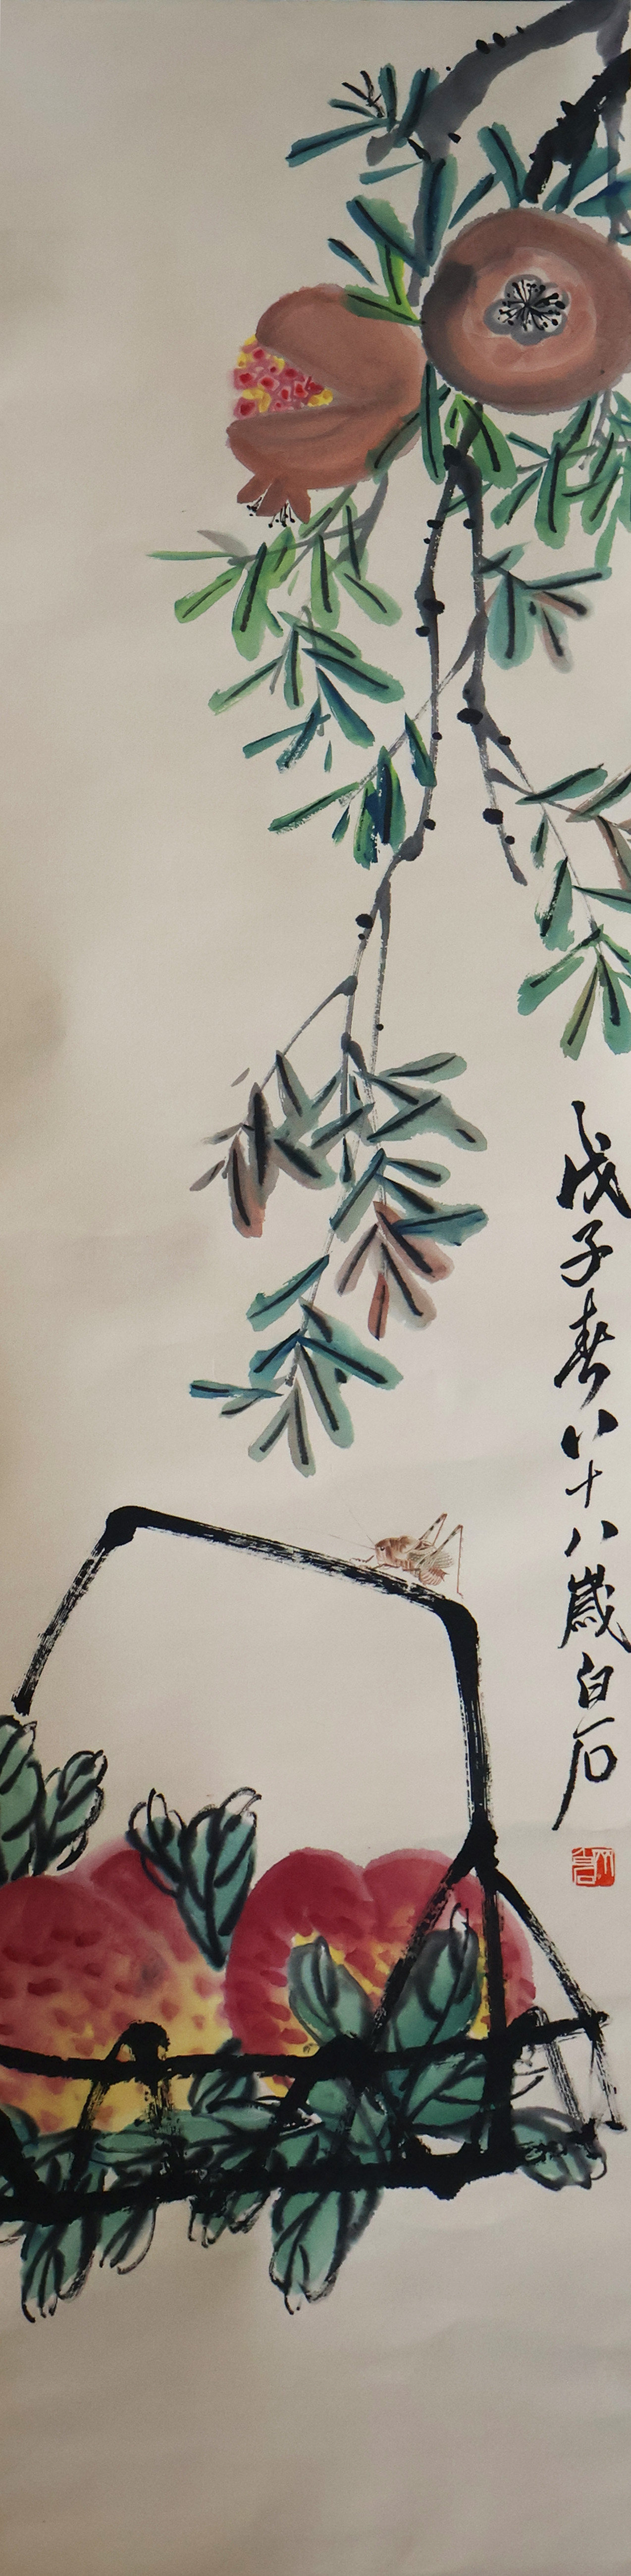 戊子春八十八歲白石